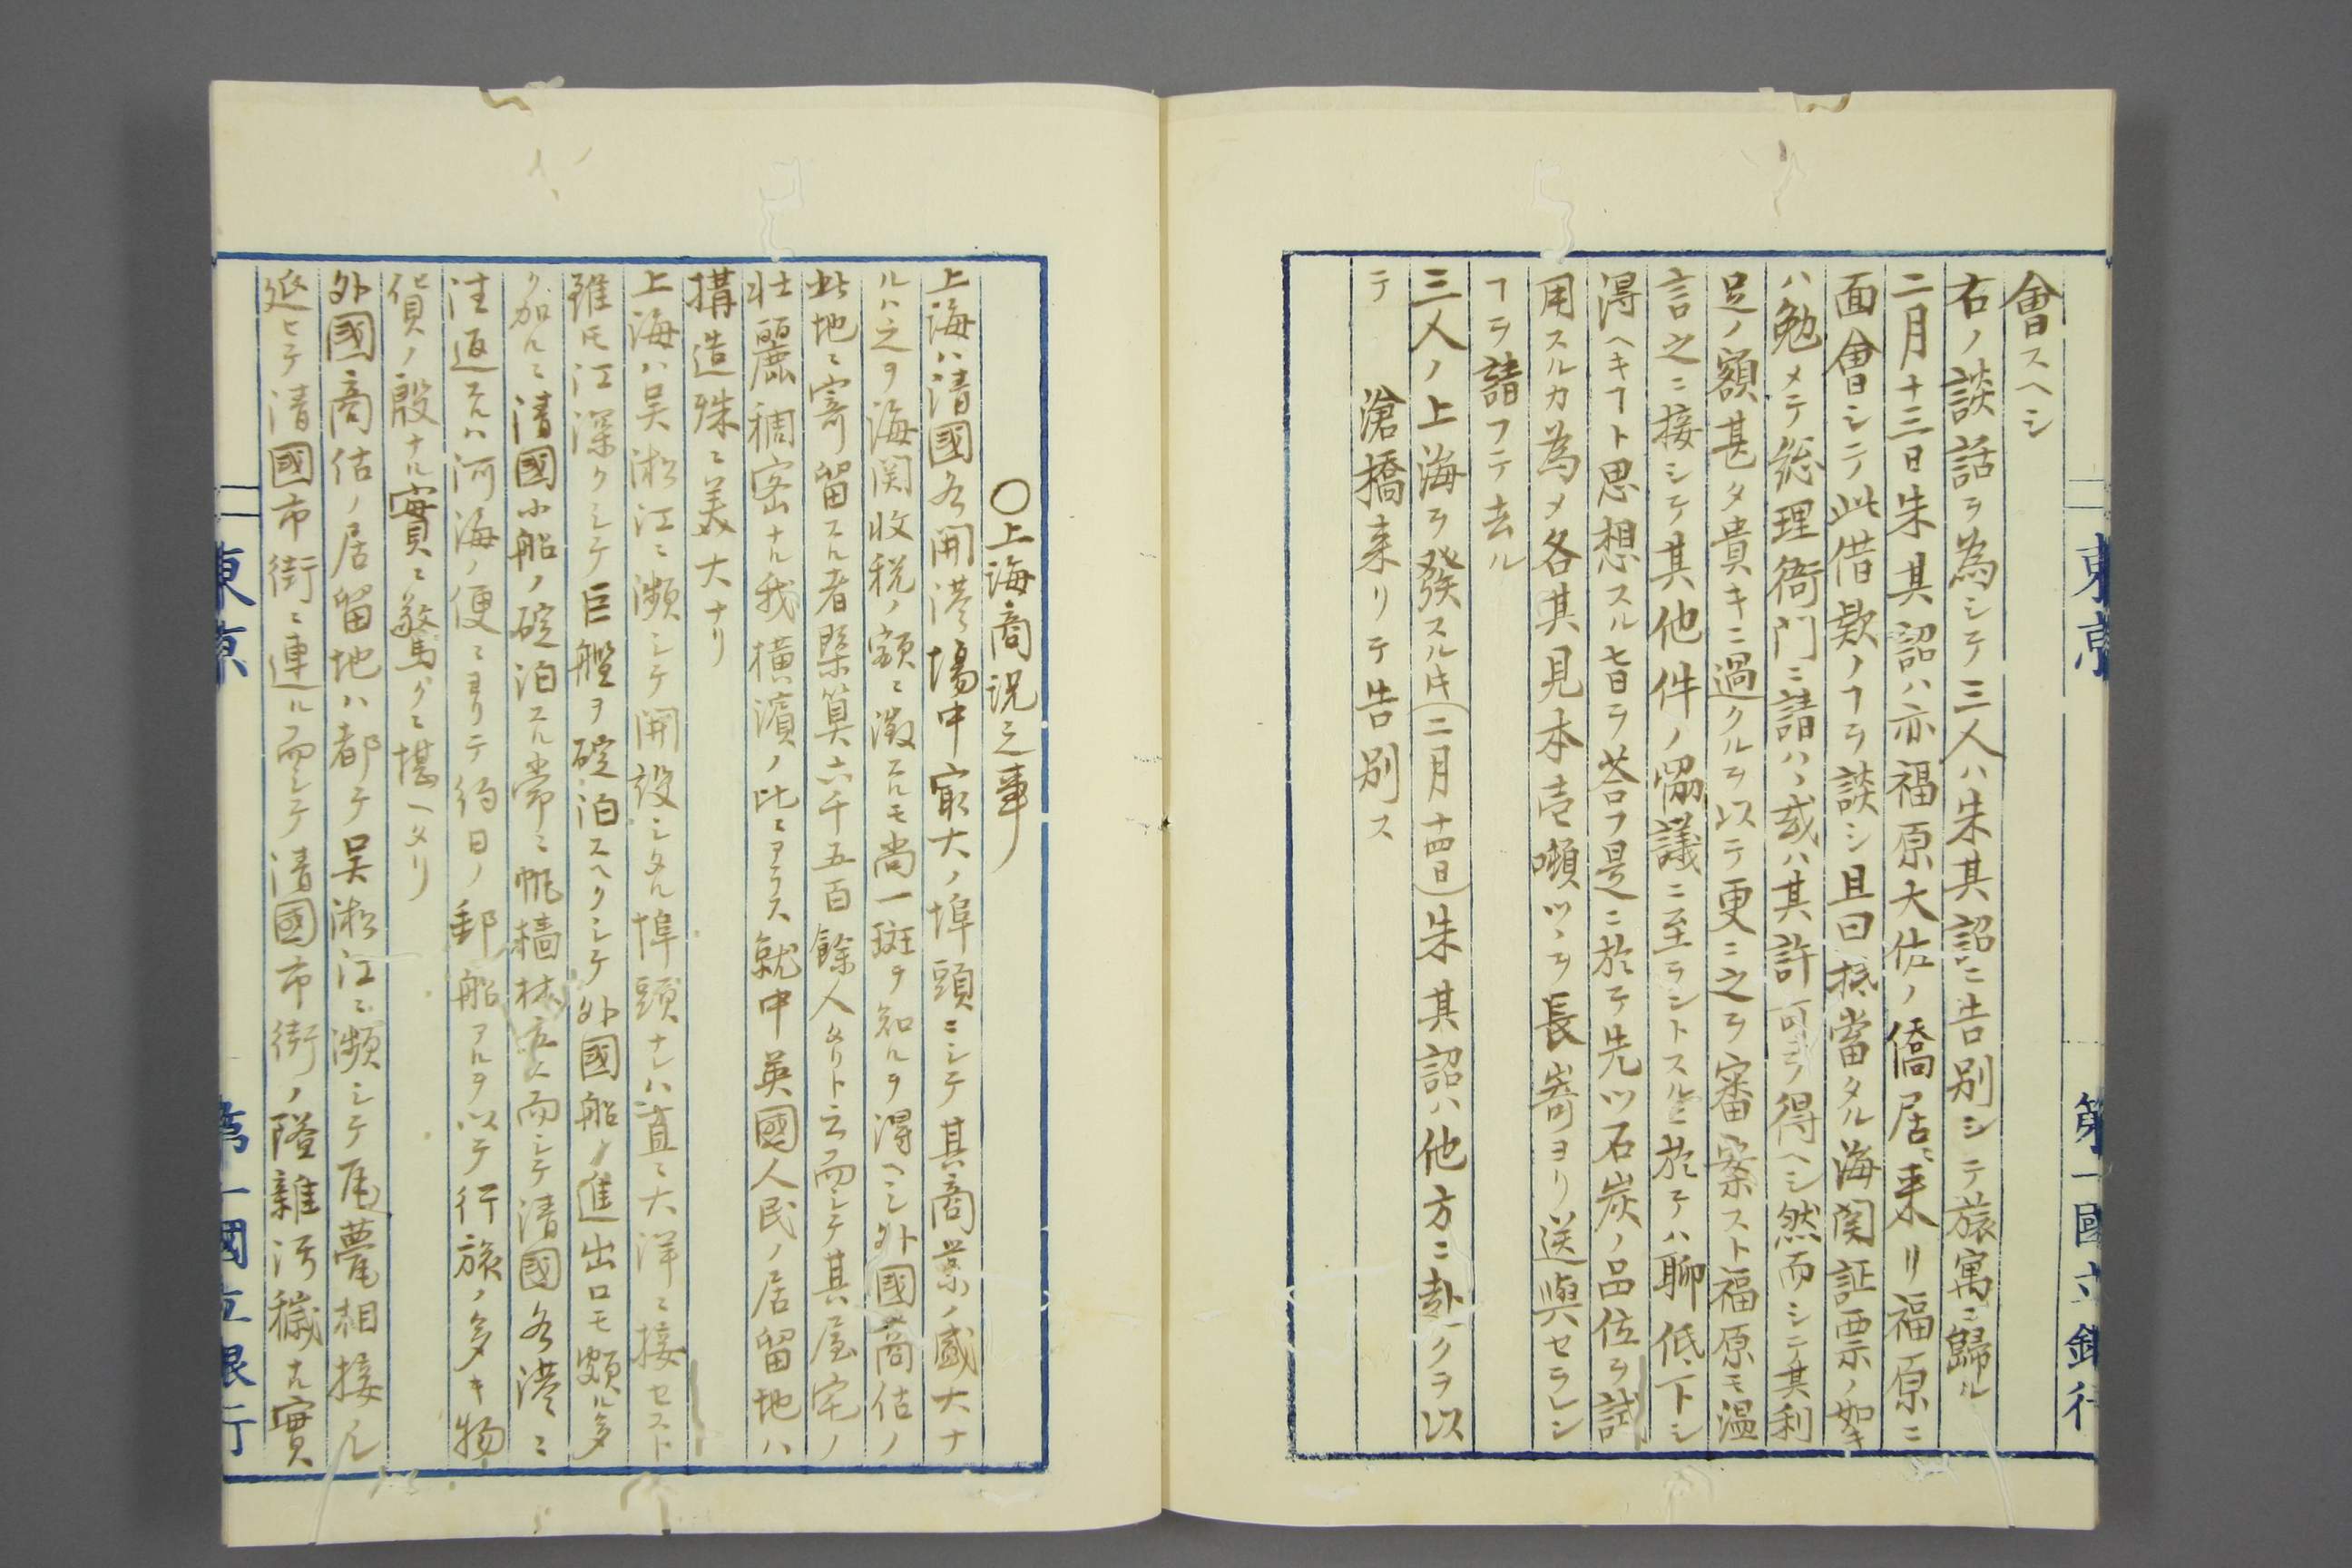 東京 第一國立銀行
會スヘシ
右ノ談話ヲ為シテ三人ハ朱其詔ニ告別シテ旅寓ニ歸ル
二月十三日朱其詔ハ亦福原大佐ノ僑居ニ来リ福原ニ
面會シテ此借欵ノヿヲ談シ且曰抵當タル海関証票ノ如キ
ハ勉メテ総理衙门ニ請ハヽ或ハ其許可ヲ得ヘシ然而シテ其利
足ノ額甚タ貴キニ過クルヲ以テ更ニ之ヲ審案スト福原モ温
言之ニ接シテ其他件ノ協議ニ至ラントスルニ於テハ聊低下シ
得ヘキヿト思想スル旨ヲ荅フ是ニ於テ先ツ石炭ノ品位ヲ試
用スルカ為メ各其見本壱噸ツヽヲ長嵜ヨリ送與セラレン
ヿヲ請フテ去ル
三人ノ上海ヲ發スル㆑(二月十四日)朱其詔ハ他方ニ赴クヲ以
テ 滄橋来リテ告别ス
〇上海商況之事
上海ハ清國各開港塲中㝡大ノ埠頭ニシテ其商業ノ盛大ナ
ルハ之ヲ海関收税ノ額ニ徴スルモ尚一斑ヲ知ルヲ得ヘシ外國商估ノ
此地ニ寄留スル者槩算六千五百餘人タリト云而シテ其屋宅ノ
壮麗稠密ナル我横濱ノ比ニアラス就中英國人民ノ居留地ハ
搆造殊ニ美大ナリ
上海ハ吴淞江ニ瀕シテ開設シタル埠頭ナレハ直ニ大洋ニ接セスト
雖𪜈江深クシテ巨艦ヲ碇泊スヘクシテ外國船ノ進出口モ頗ル多
ク加ルニ清國小船ノ碇泊スル常ニ帆檣林立シ而シテ清國各港ニ
往返スルハ河海ノ便ニヨリテ約日ノ郵船アルヲ以テ行旅ノ多キ物
貨ノ殷ナル實ニ驚クニ堪ヘタリ
外國商估ノ居留地ハ都テ吴淞江ニ瀕シテ屋甍相接ノ
延ヒテ清國市街ニ連ル而シテ清國市街ノ隘雜汚穢ナル實
東京 第一國立銀行